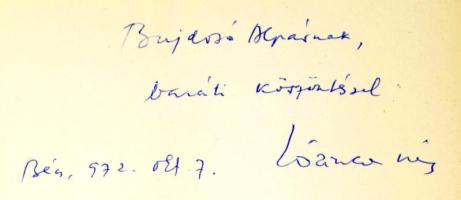 Bujdosó Alpárnak,
baráti köszöntéssel
Bécs, 972. okt 7.